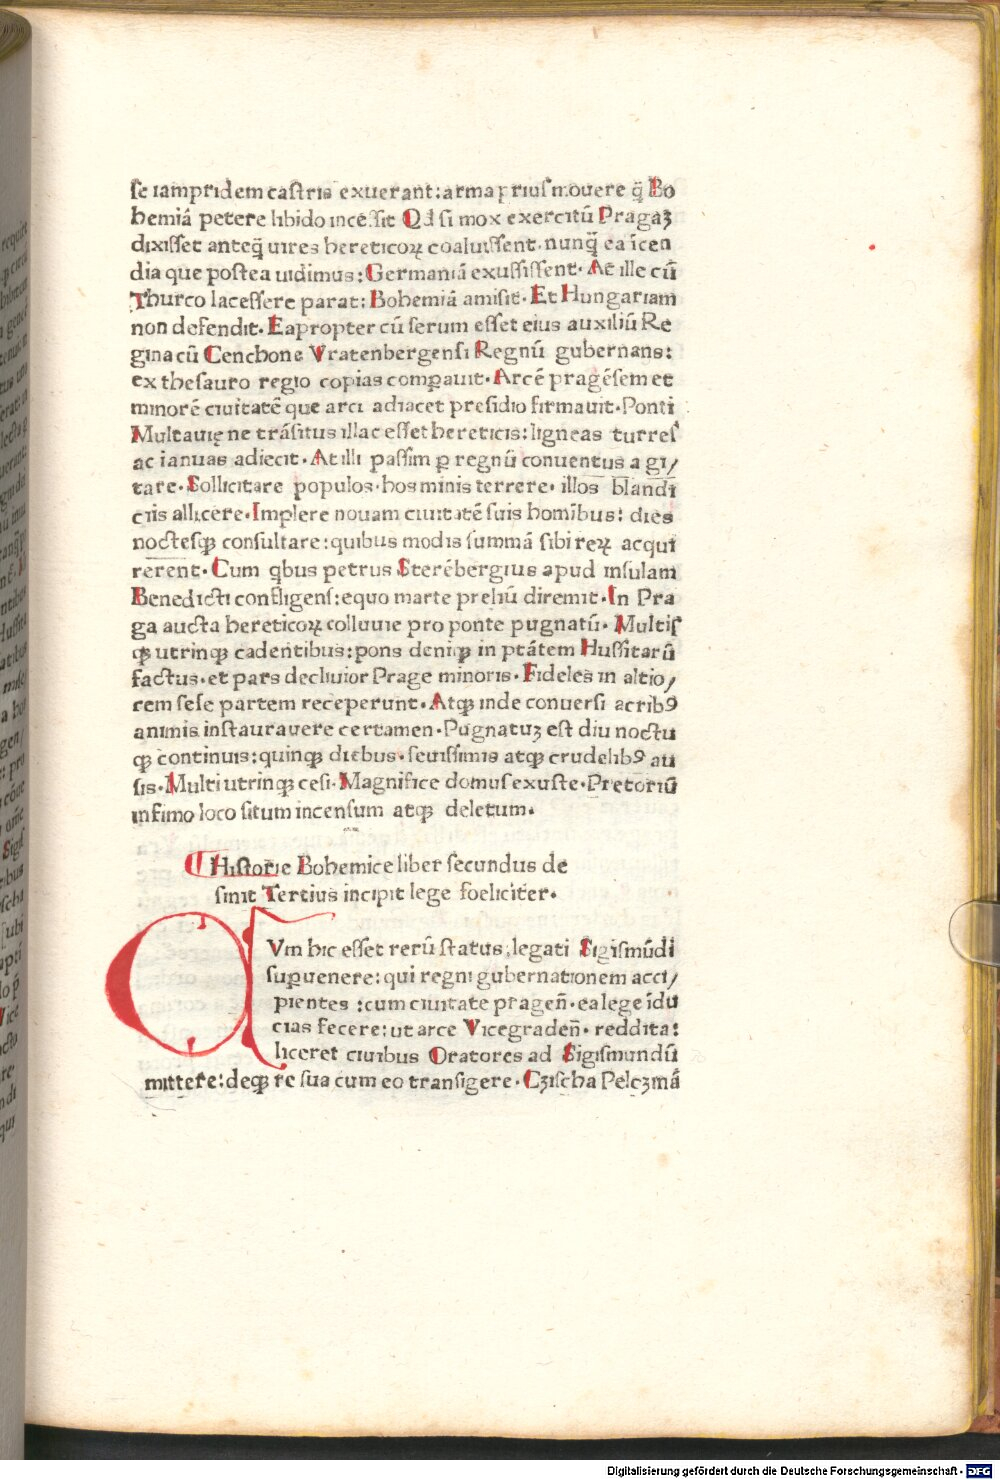 se iampridem castris exuerant: arma prius mouere q̃ Bo
hemiã petere libido incessit Qđ si mox exercitũ Pragaʒ
dixisset anteq̃ uires hereticoꝝ coaluissent. nunq̃ ea ĩcen
dia que postea uidimus: Germaniã exussissent. At ille cũ
Thurco lacessere parat: Bohemiã amisit. Et Hungariam
non defendit. Eapropter cũ serum esset eius auxiliũ Re
gina cũ Cenchone Vratenbergensi Regnũ gubernans:
ex thesauro regio copias comꝑauit. Arcẽ pragẽsem et
minorẽ ciuitatẽ que arci adiacet presidio firmauit. Ponti
Multauię ne trãsitus illac esset hereticis: ligneas turres
ac ianuas adiecit. At illi passim ꝑ regnũ conuentus a gi/
tare. Sollicitare populos. hos minis terrere. illos blandi
ciis allicere. Implere nouam ciuitatẽ suis homĩbus: dies
noctesqꝫ consultare: quibus modis summã sibi reꝝ acqui
rerent. Cum q̃bus petrus Sterẽbergius apud insulam
Benedicti confligens: equo marte preliũ diremit. In Pra
ga aucta hereticoꝝ colluuie pro ponte pugnatũ. Multis
qꝫ utrinqꝫ cadentibus: pons deniqꝫ in ptãtem Hussitarũ
factus. et pars decliuior Prage minoris. Fideles in altio/
rem sese partem receperunt. Atqꝫ inde conuersi acribꝰ
animis instaurauere certamen. Pugnatuʒ est diu noctu
qꝫ continuis: quinqꝫ diebus. seuissimis atqꝫ crudelibꝰ au
sis. Multi utrinqꝫ cesi. Magnifice domus exuste. Pretoriũ
infimo loco situm incensum atqꝫ deletum.
¶ Historie Bohemice liber secundus de
sinit Tertius incipit lege foeliciter.
CVm hic esset rerũ status, legati Sigismũdi
suꝑuenere: qui regni gubernationem acci/
pientes : cum ciuitate prageñ. ea lege ĩdu
cias fecere: ut arce Vicegradeñ. reddita:
liceret ciuibus Oratores ad Sigismundũ
mittere: deqꝫ re sua cum eo transigere. Cʒischa Pelcʒmã
Digitalisierung gefördert durch die Deutsche Forschungsgemeinschaft - DFG